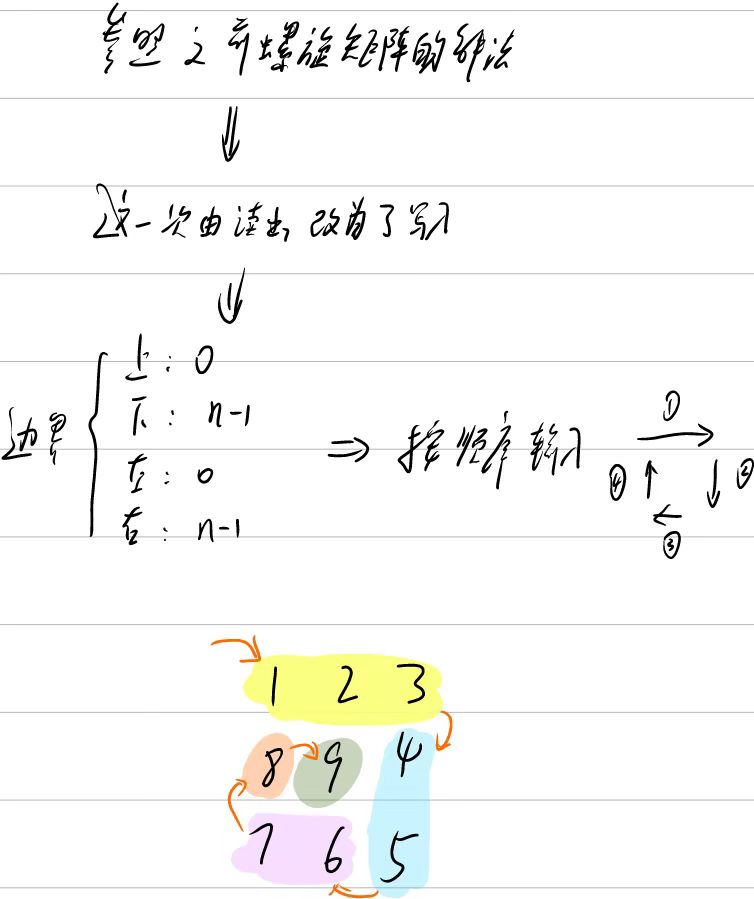 参照之前螺旋矩阵的解法
⇓
这一次由读出,改为了写入
⇓
边界
上: 0
下: n-1
左: 0
右: n-1
⇒ 按顺序输入
① ② ③ ④
1 2 3
8 9 4
7 6 5